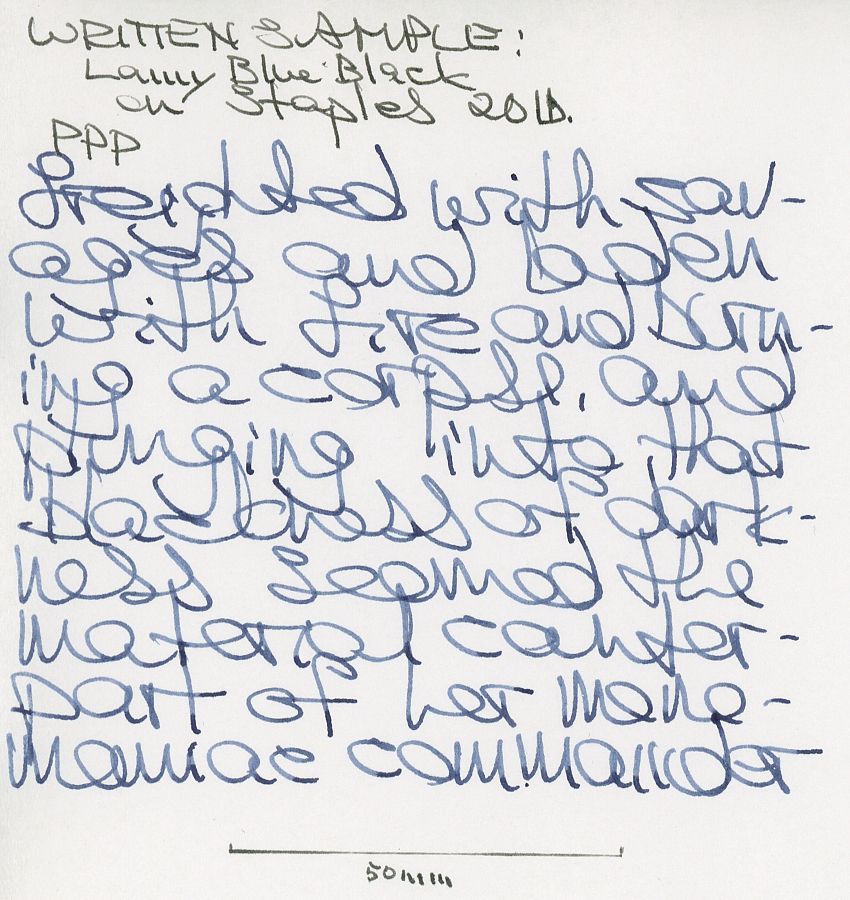 WRITTEN SAMPLE:
Lamy Blue-Black
on Staples 20 lb.
PPP
freighted with sav-
ages and laden
with fire and burn-
ing a corpse, and
plunging into that
blackness of dark-
ness seemed the
material counter-
part of her mono-
maniac commander
50mm